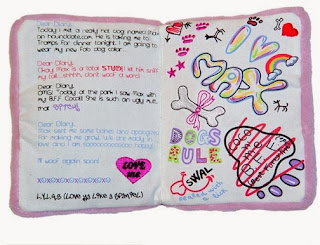 Dear Diary,
Today I met a really hot dog named Max
on hounddate.com. He is taking me to
Tramps for dinner tonight. I am going to
wear my new Fab dog collar.
Dear Diary,
Okay Max is a total STUD!! I let him sniff
my tush... shhhh, dont woof a word.
Dear Diary,
OMG! Today at the park I saw Max with
my B.F.F. Coco!! She is such an ugly mutt.
that BITCH!
Dear Diary,
Max sent me some bones and apologized
for making me growl. We are madly in
love and I am soooooooooooo happy!
I'll woof again soon!
xoxoxoxoxoxoxo
L.Y.L.A.S (Love ya Like A Spaniel)
LOVE
ME
I
MAX
DOGS
RULE
SWAL
sealed with
a lick
COCO
AND
BELLA
Best Furry Friends